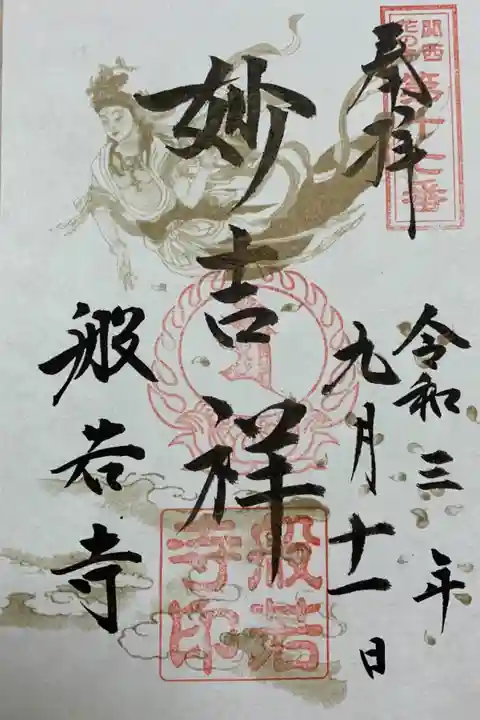 奉拝
関西
花の寺
第十七番
令和三年
九月十一日
妙吉祥
般若寺
般若
寺印